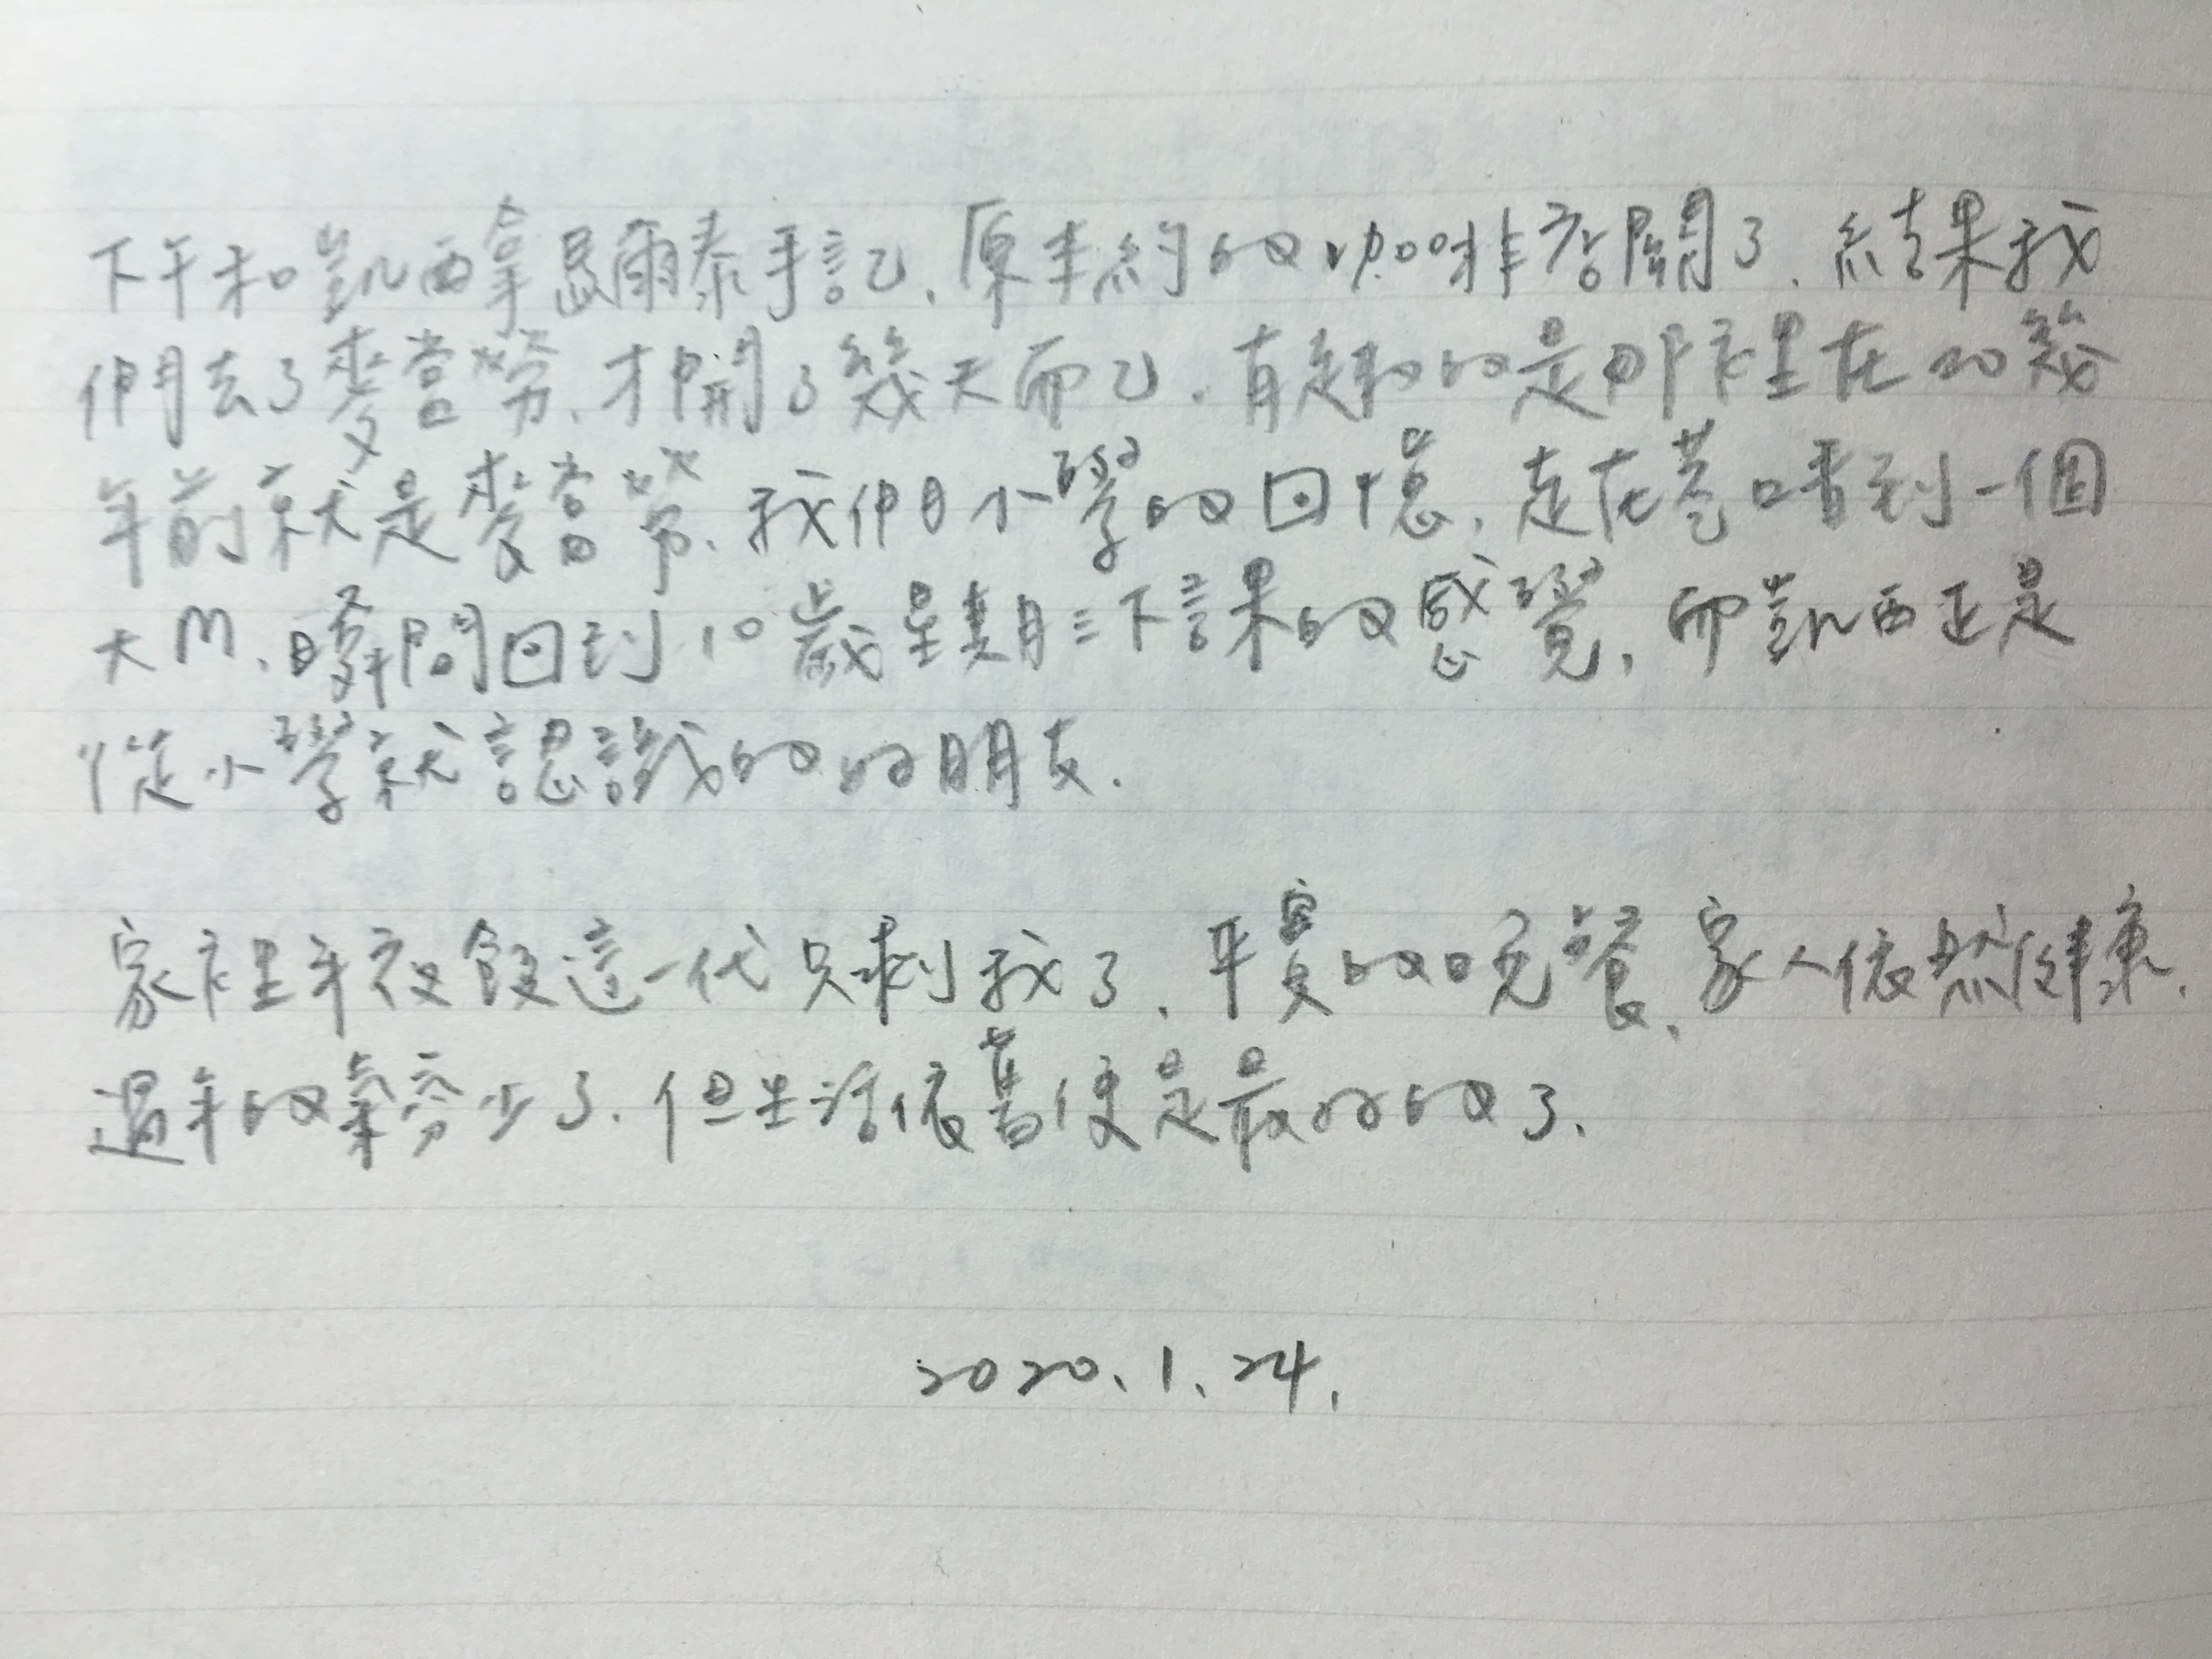 下午和凱西拿馬爾泰手記、原本約的咖啡店關了、結果我
們去了麥當勞、才開了幾天而已、有趣的是那裡在20幾
年前就是麥當勞、我們小學的回憶、走在巷口看到一個
大M、瞬間回到10歲星期三下課的感覺、而凱西正是
從小學就認識的好朋友.
家裡年夜飯這一代只剩我了、平實的晚餐、家人依然健康、
過年的氣氛少了、但生活依舊便是最好的了、
2020、1、24、